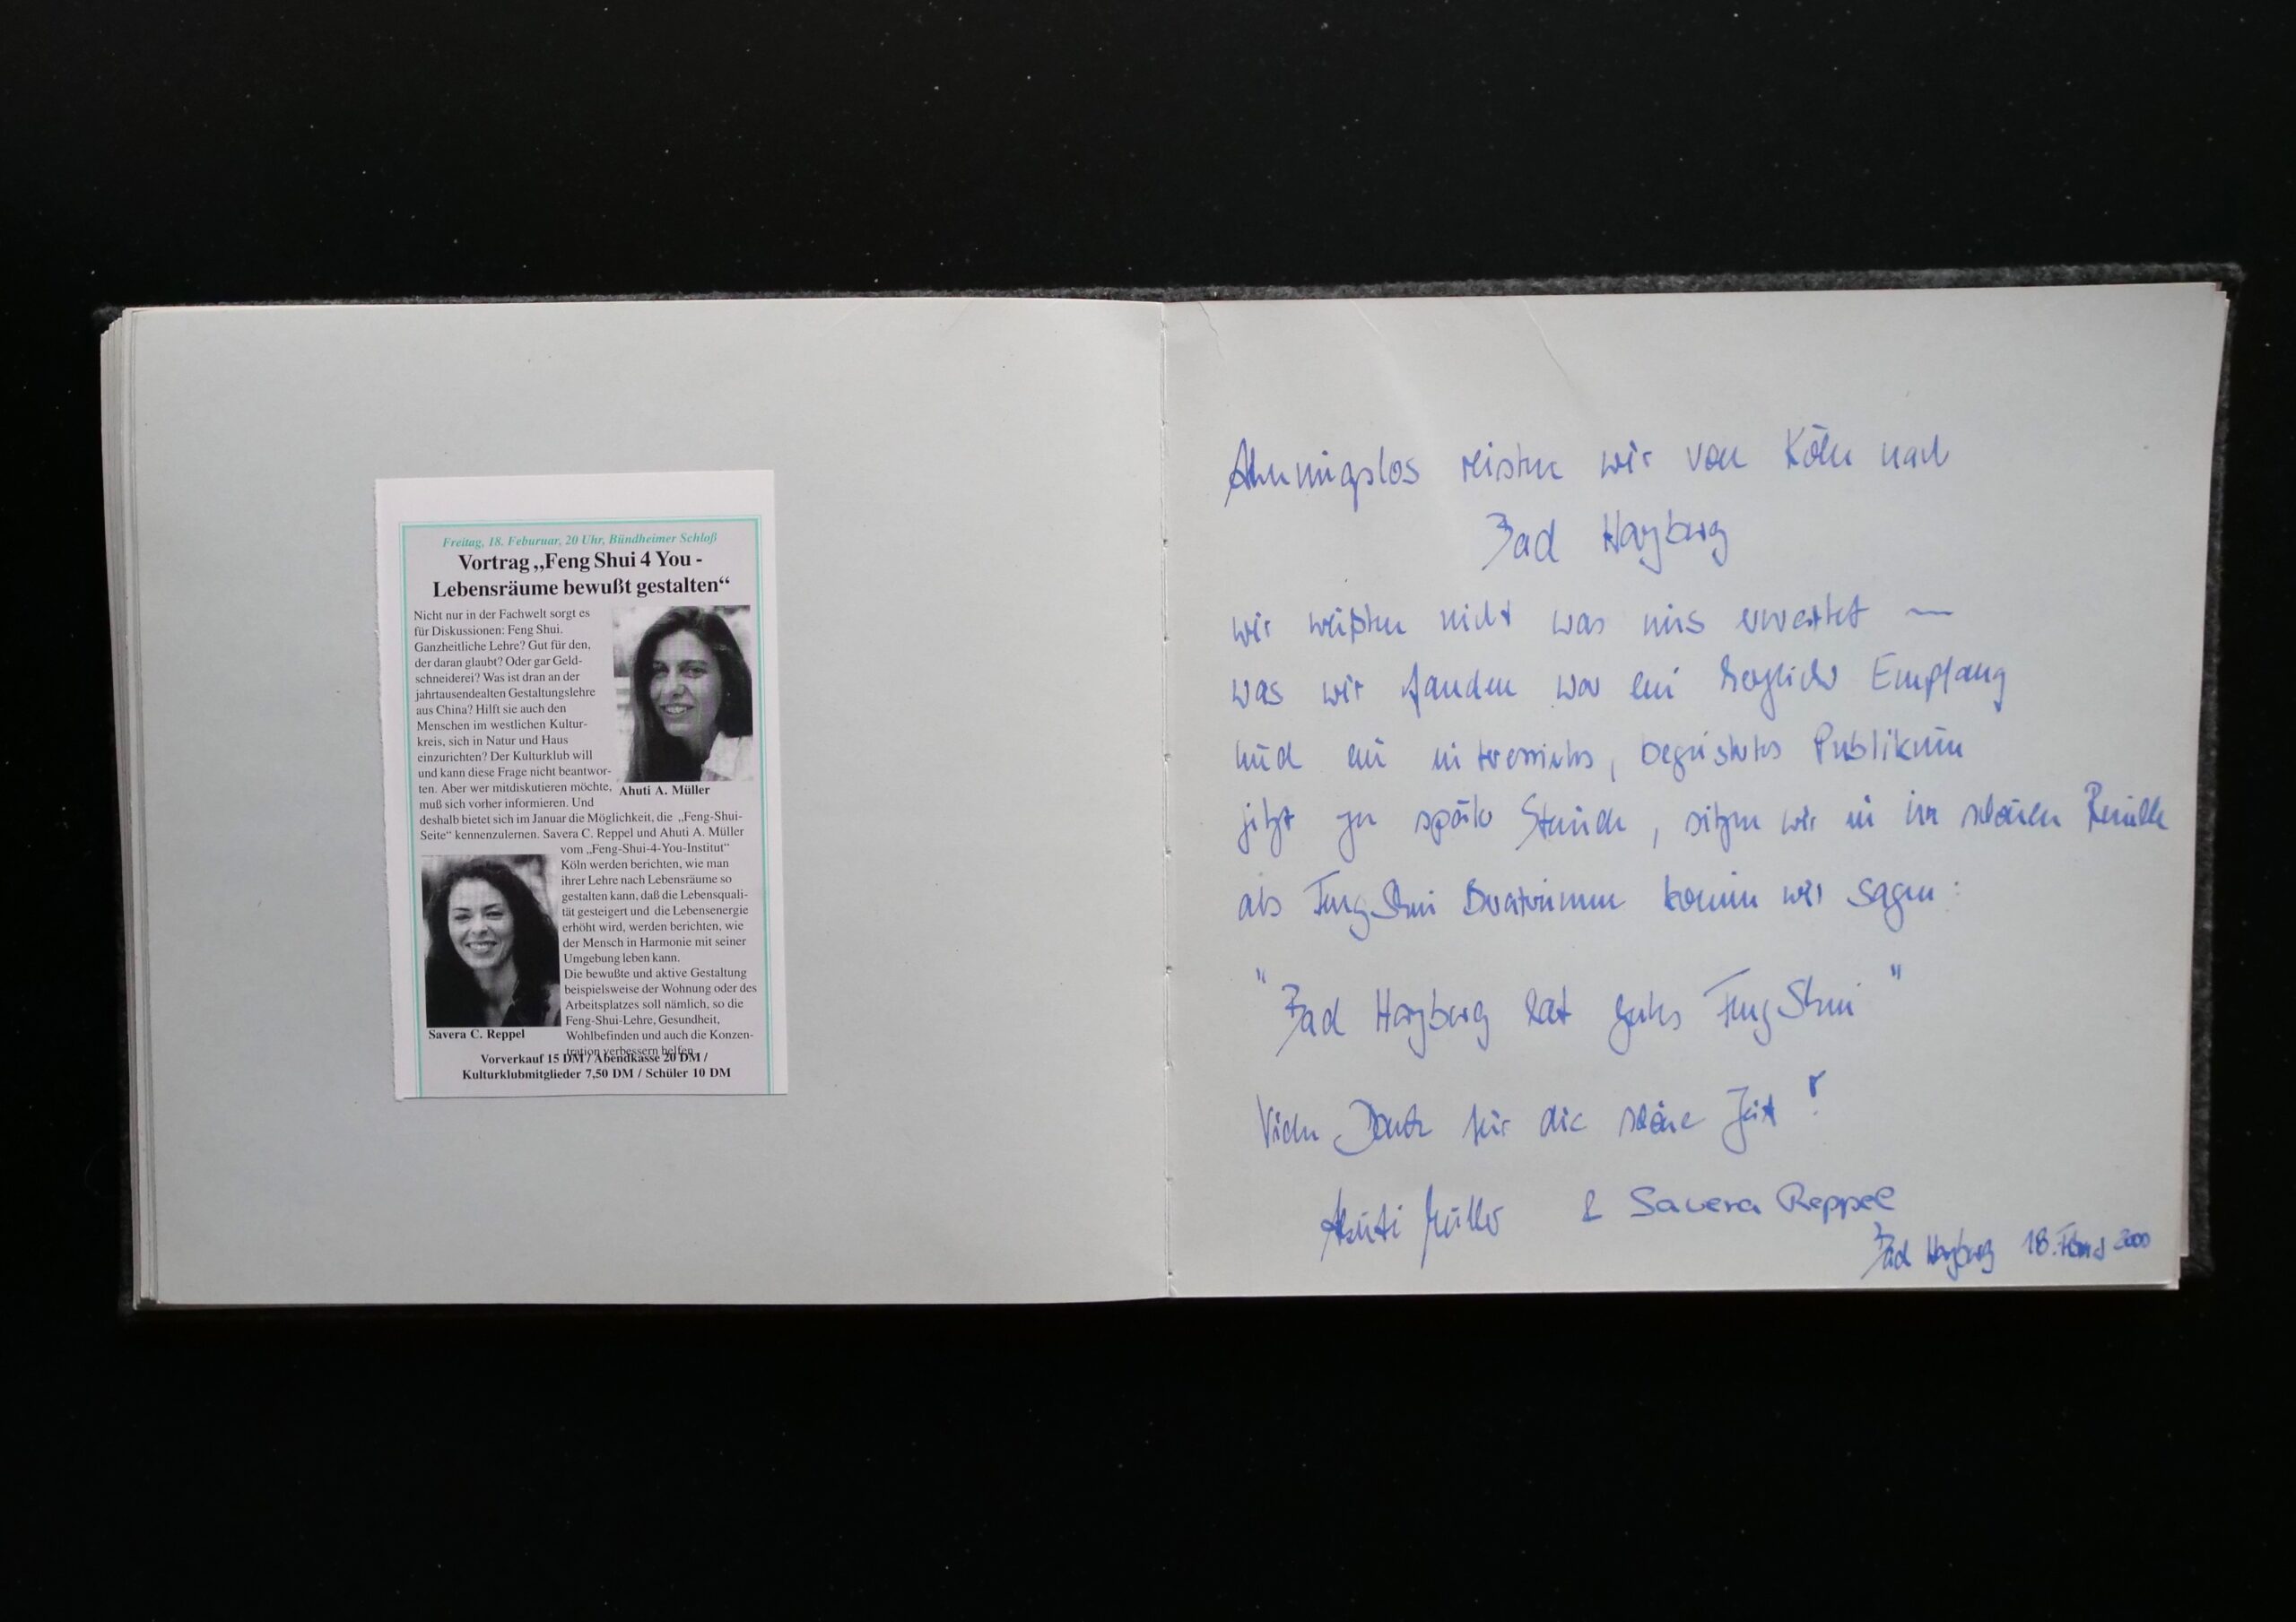 Freitag, 18. Feburuar, 20 Uhr, Bündheimer Schloß
Vortrag „Feng Shui 4 You -
Lebensräume bewußt gestalten“
Nicht nur in der Fachwelt sorgt es
für Diskussionen: Feng Shui.
Ganzheitliche Lehre? Gut für den,
der daran glaubt? Oder gar Geld-
schneiderei? Was ist dran an der
jahrtausendealten Gestaltungslehre
aus China? Hilft sie auch den
Menschen im westlichen Kultur-
kreis, sich in Natur und Haus
einzurichten? Der Kulturklub will
und kann diese Frage nicht beantwor-
ten. Aber wer mitdiskutieren möchte,
muß sich vorher informieren. Und
Ahuti A. Müller
deshalb bietet sich im Januar die Möglichkeit, die „Feng-Shui-
Seite“ kennenzulernen. Savera C. Reppel und Ahuti A. Müller
vom „Feng-Shui-4-You-Institut“
Köln werden berichten, wie man
ihrer Lehre nach Lebensräume so
gestalten kann, daß die Lebensquali-
tät gesteigert und die Lebensenergie
erhöht wird, werden berichten, wie
der Mensch in Harmonie mit seiner
Umgebung leben kann.
Die bewußte und aktive Gestaltung
beispielsweise der Wohnung oder des
Arbeitsplatzes soll nämlich, so die
Feng-Shui-Lehre, Gesundheit,
Wohlbefinden und auch die Konzen-
tration verbessern helfen.
Savera C. Reppel
Vorverkauf 15 DM / Abendkasse 20 DM /
Kulturklubmitglieder 7,50 DM / Schüler 10 DM
Ahnungslos reisten wir von Köln nach
Bad Harzburg
wir wußten nicht was uns erwartet —
was wir fanden war ein herzlicher Empfang
und ein interessiertes, begeistertes Publikum
jetzt zu später Stunde, sitzen wir in der schönen Remise
als Feng Shui Beraterinnen können wir sagen:
"Bad Harzburg hat gutes Feng Shui"
Vielen Dank für die schöne Zeit!
Ahuti Müller & Savera Reppel
Bad Harzburg 18. Februar 2000